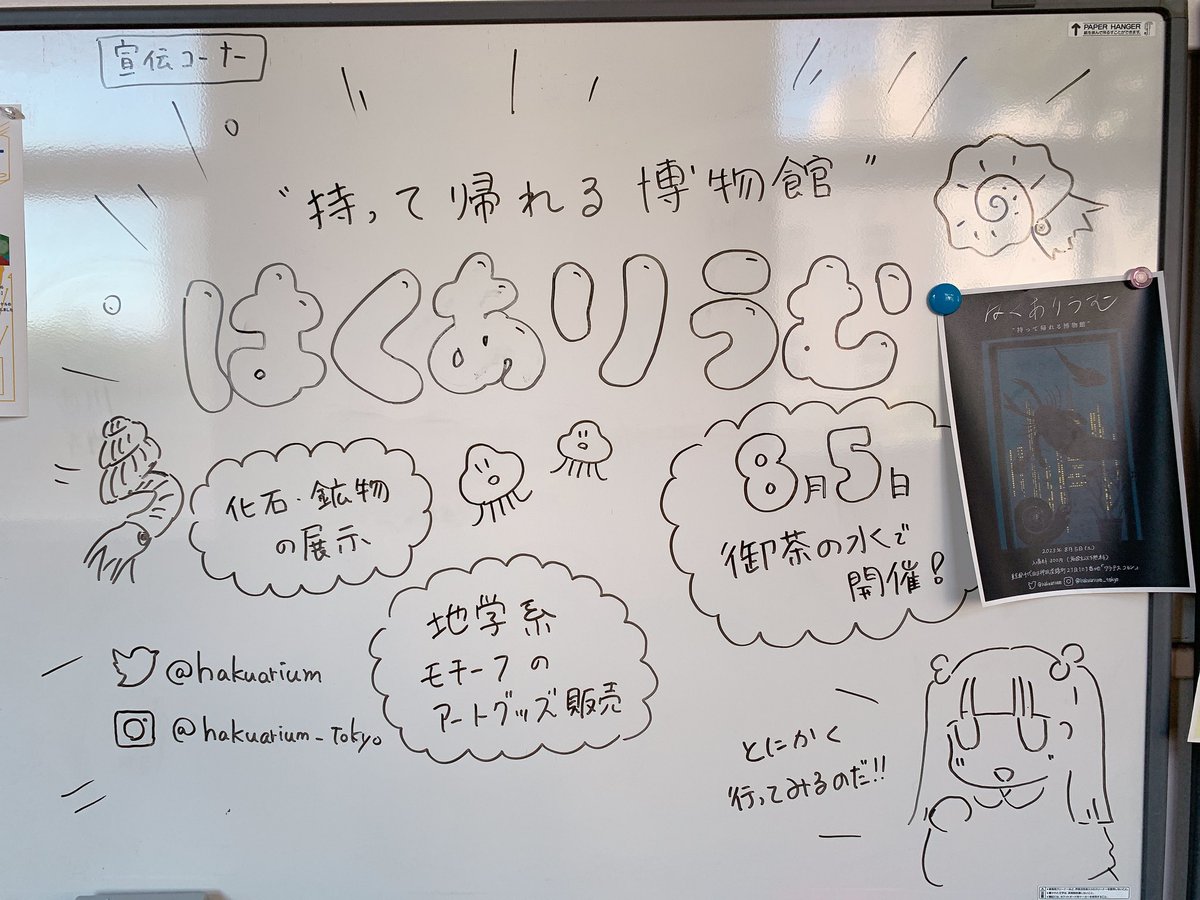 宣伝コーナー
PAPER HANGER
"持って帰れる博物館"
はくありうむ
はくありうむ
"持って帰れる博物館"
8月5日
御茶の水で
開催!
化石・鉱物
の展示
地学系
モチーフの
アートグッズ販売
2023年8月5日(土)
@hakuarium @hakuarium_tokyo
@hakuarium
@hakuarium_Tokyo
とにかく
行ってみるのだ!!